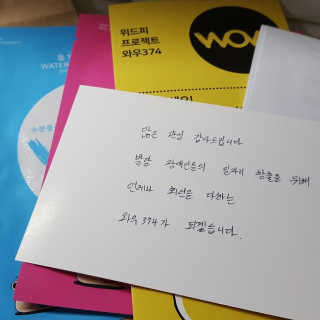 위드피
프로젝트
와우374
WOW
WATER
많은 관심 감사드립니다.
발달 장애인들의 일자리 창출을 위해
언제나 최선을 다하는
와우 374가 되겠습니다.